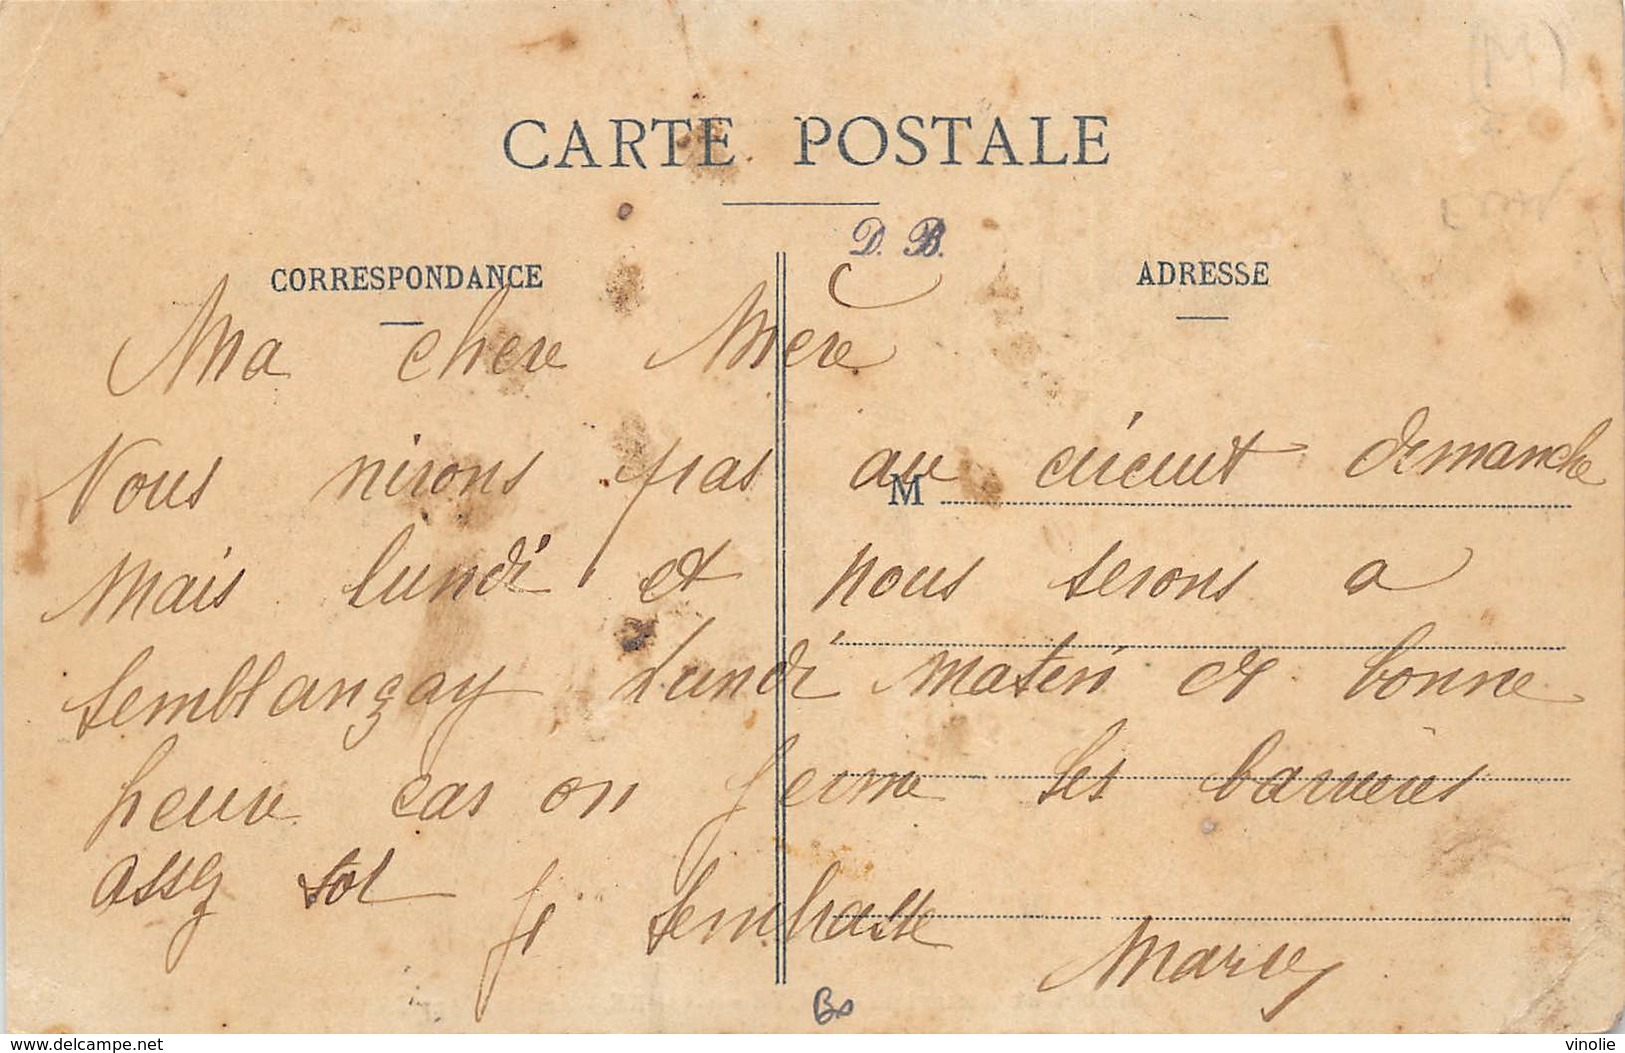 CARTE POSTALE
D. B.
CORRESPONDANCE
ADRESSE
Ma chere Mere
Nous nirons pas au circuit demanche
M
Mais lundi et nous serons a
Semblançay Lundi maten de bonne
heure car on ferme les barrieres
assez tot je tembrasse
Marie
Bs
www.delcampe.net
vinolie